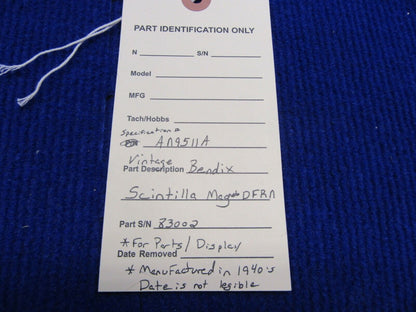 PART IDENTIFICATION ONLY
N S/N
Model
MFG
Tach/Hobbs
Specification #
AN9511A
Vintage
Part Description Bendix
Scintilla Mag DFRN
Part S/N 83002
* For Parts / Display
Date Removed
* Manufactured in 1940's
Date is not legible